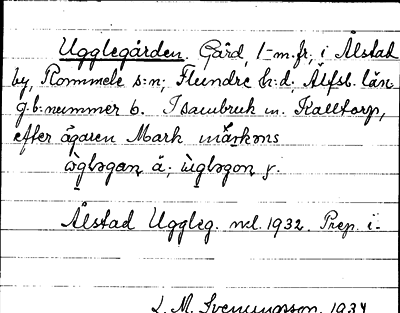 Ugglegården. Gård, 1-m.fr, i Ålstad
by, Rommele s:n; Flundre h:d, Älfsb. län
g.b:nummer 6. I sambruk m. Kalltorp,
efter ägaren Mark
ä; y.
Ålstad Uggleg. nd. 1932. Prep. i-
L. M. Svenungsson. 1934